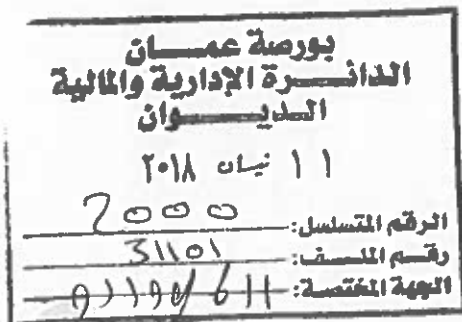 بورصة عمـــان
الدائـــــرة الإدارية والمالية
الديـــــوان
١١ نيسان ٢٠١٨
الرقم المتسلسل: 2000
رقـــم الملـــف: 31101
الجهة المختصة: